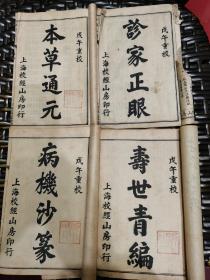 戊午重校
診家正眼
上海校經山房印行
戊午重校
本草通元
上海校經山房印行
戊午重校
壽世青編
上海校經山房印行
戊午重校
病機沙篆
上海校經山房印行